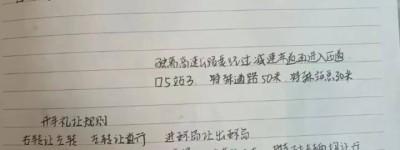 驶离高速公路要经过减速车道再进入匝道
口5站3 特殊道路50米 特殊站点30米
开车礼让规则
右转让左转 左转让直行 进环岛让出环岛